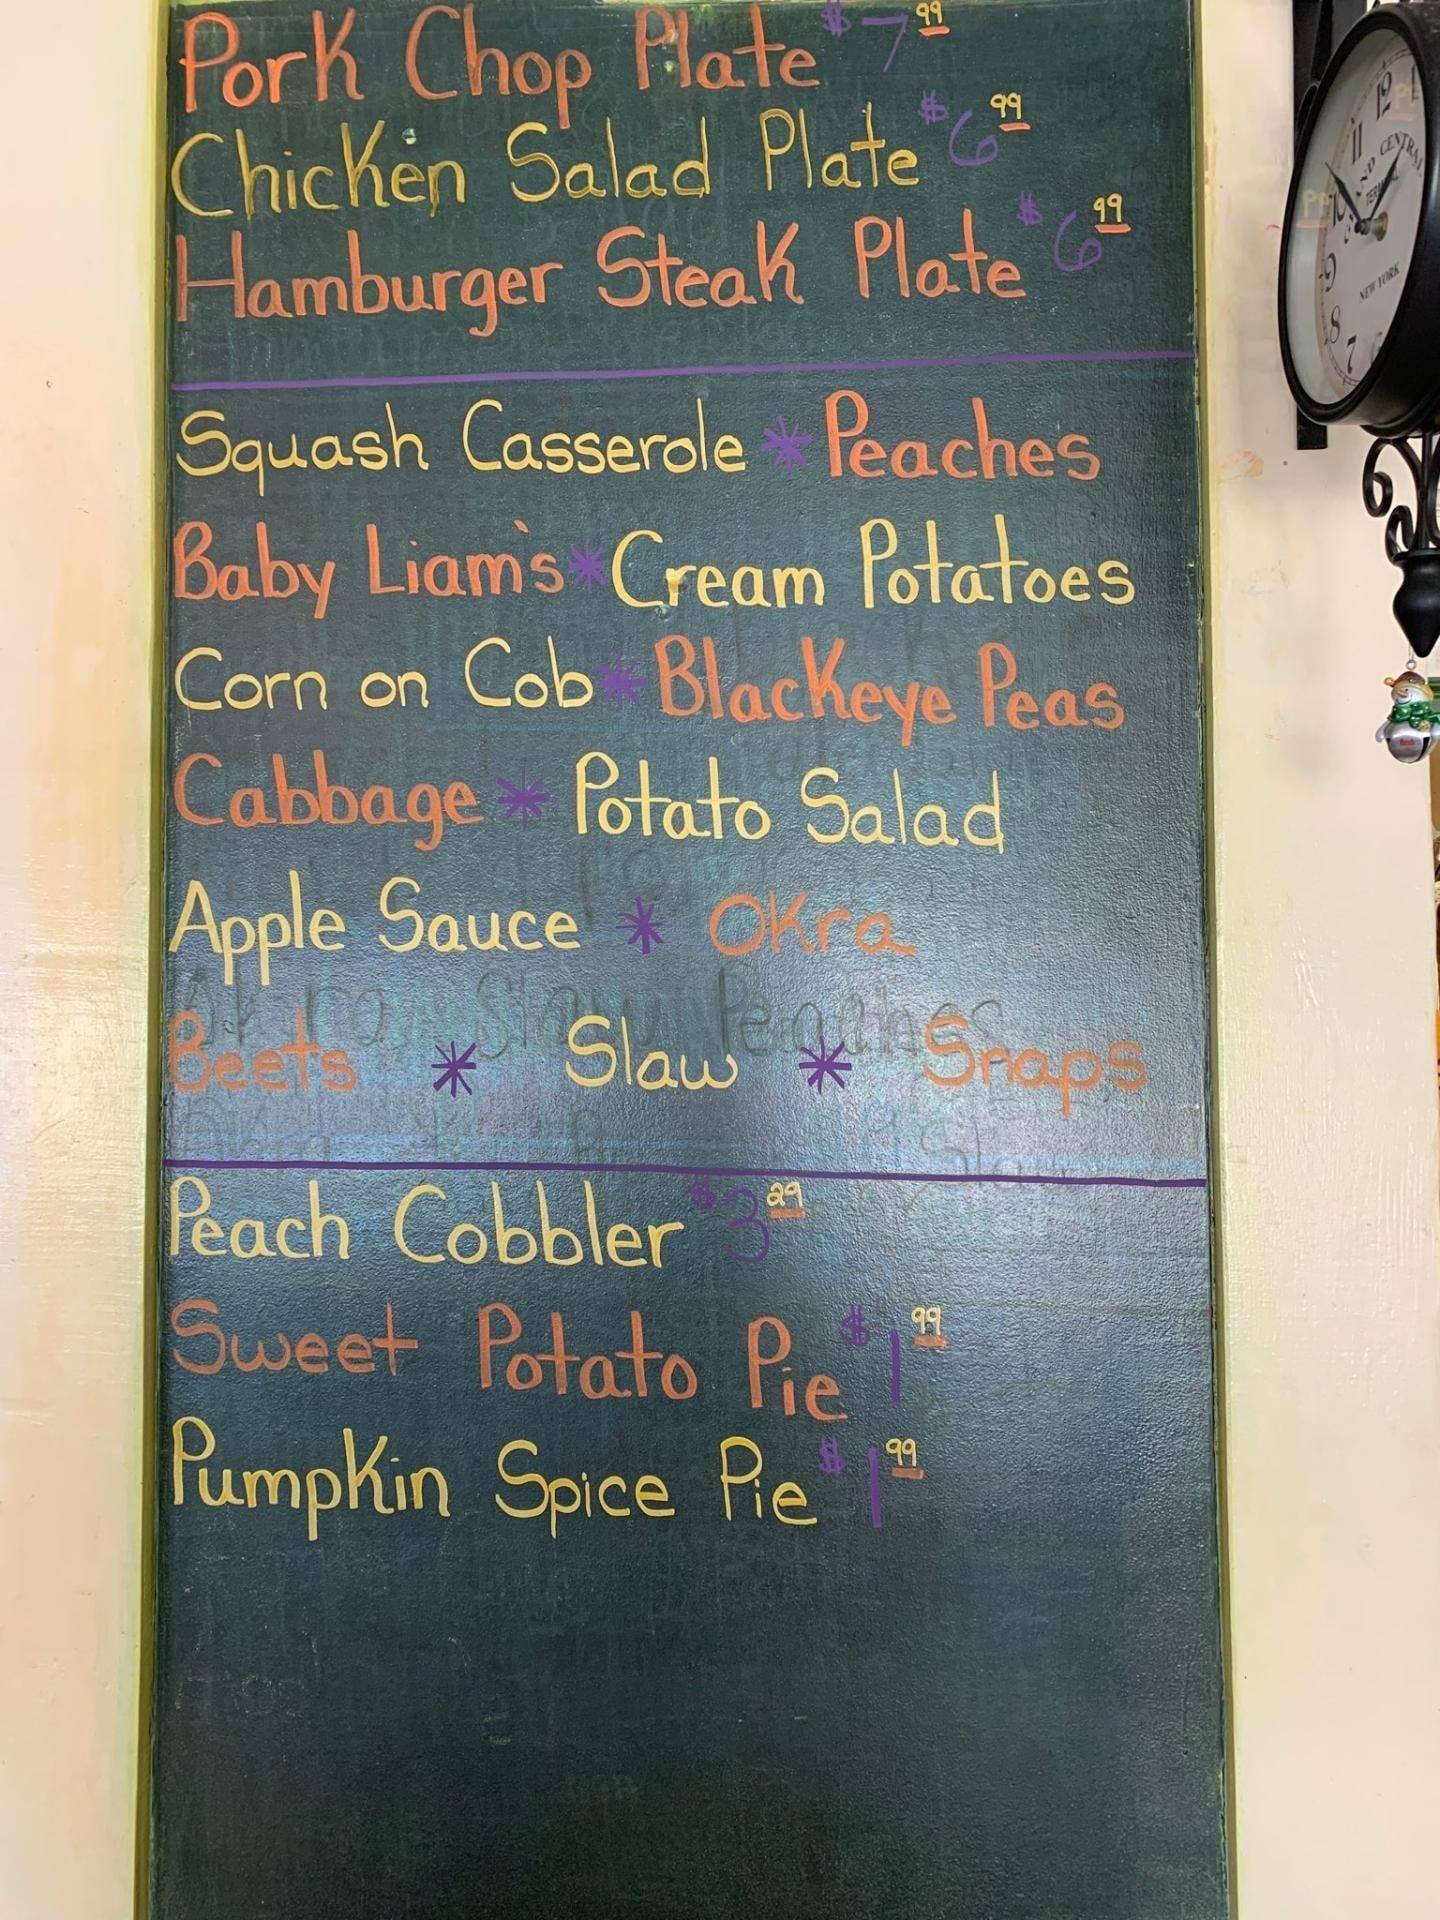 Pork Chop Plate $7.99
Chicken Salad Plate $6.99
Hamburger Steak Plate $6.99
Squash Casserole * Peaches
Baby Liam's * Cream Potatoes
Corn on Cob * Blackeye Peas
Cabbage * Potato Salad
Apple Sauce * Okra
Beets * Slaw * Snaps
Peach Cobbler $3.29
Sweet Potato Pie $1.99
Pumpkin Spice Pie $1.99
12
11
CENTRAL
TERMINAL
10
9
NEW YORK
8
7